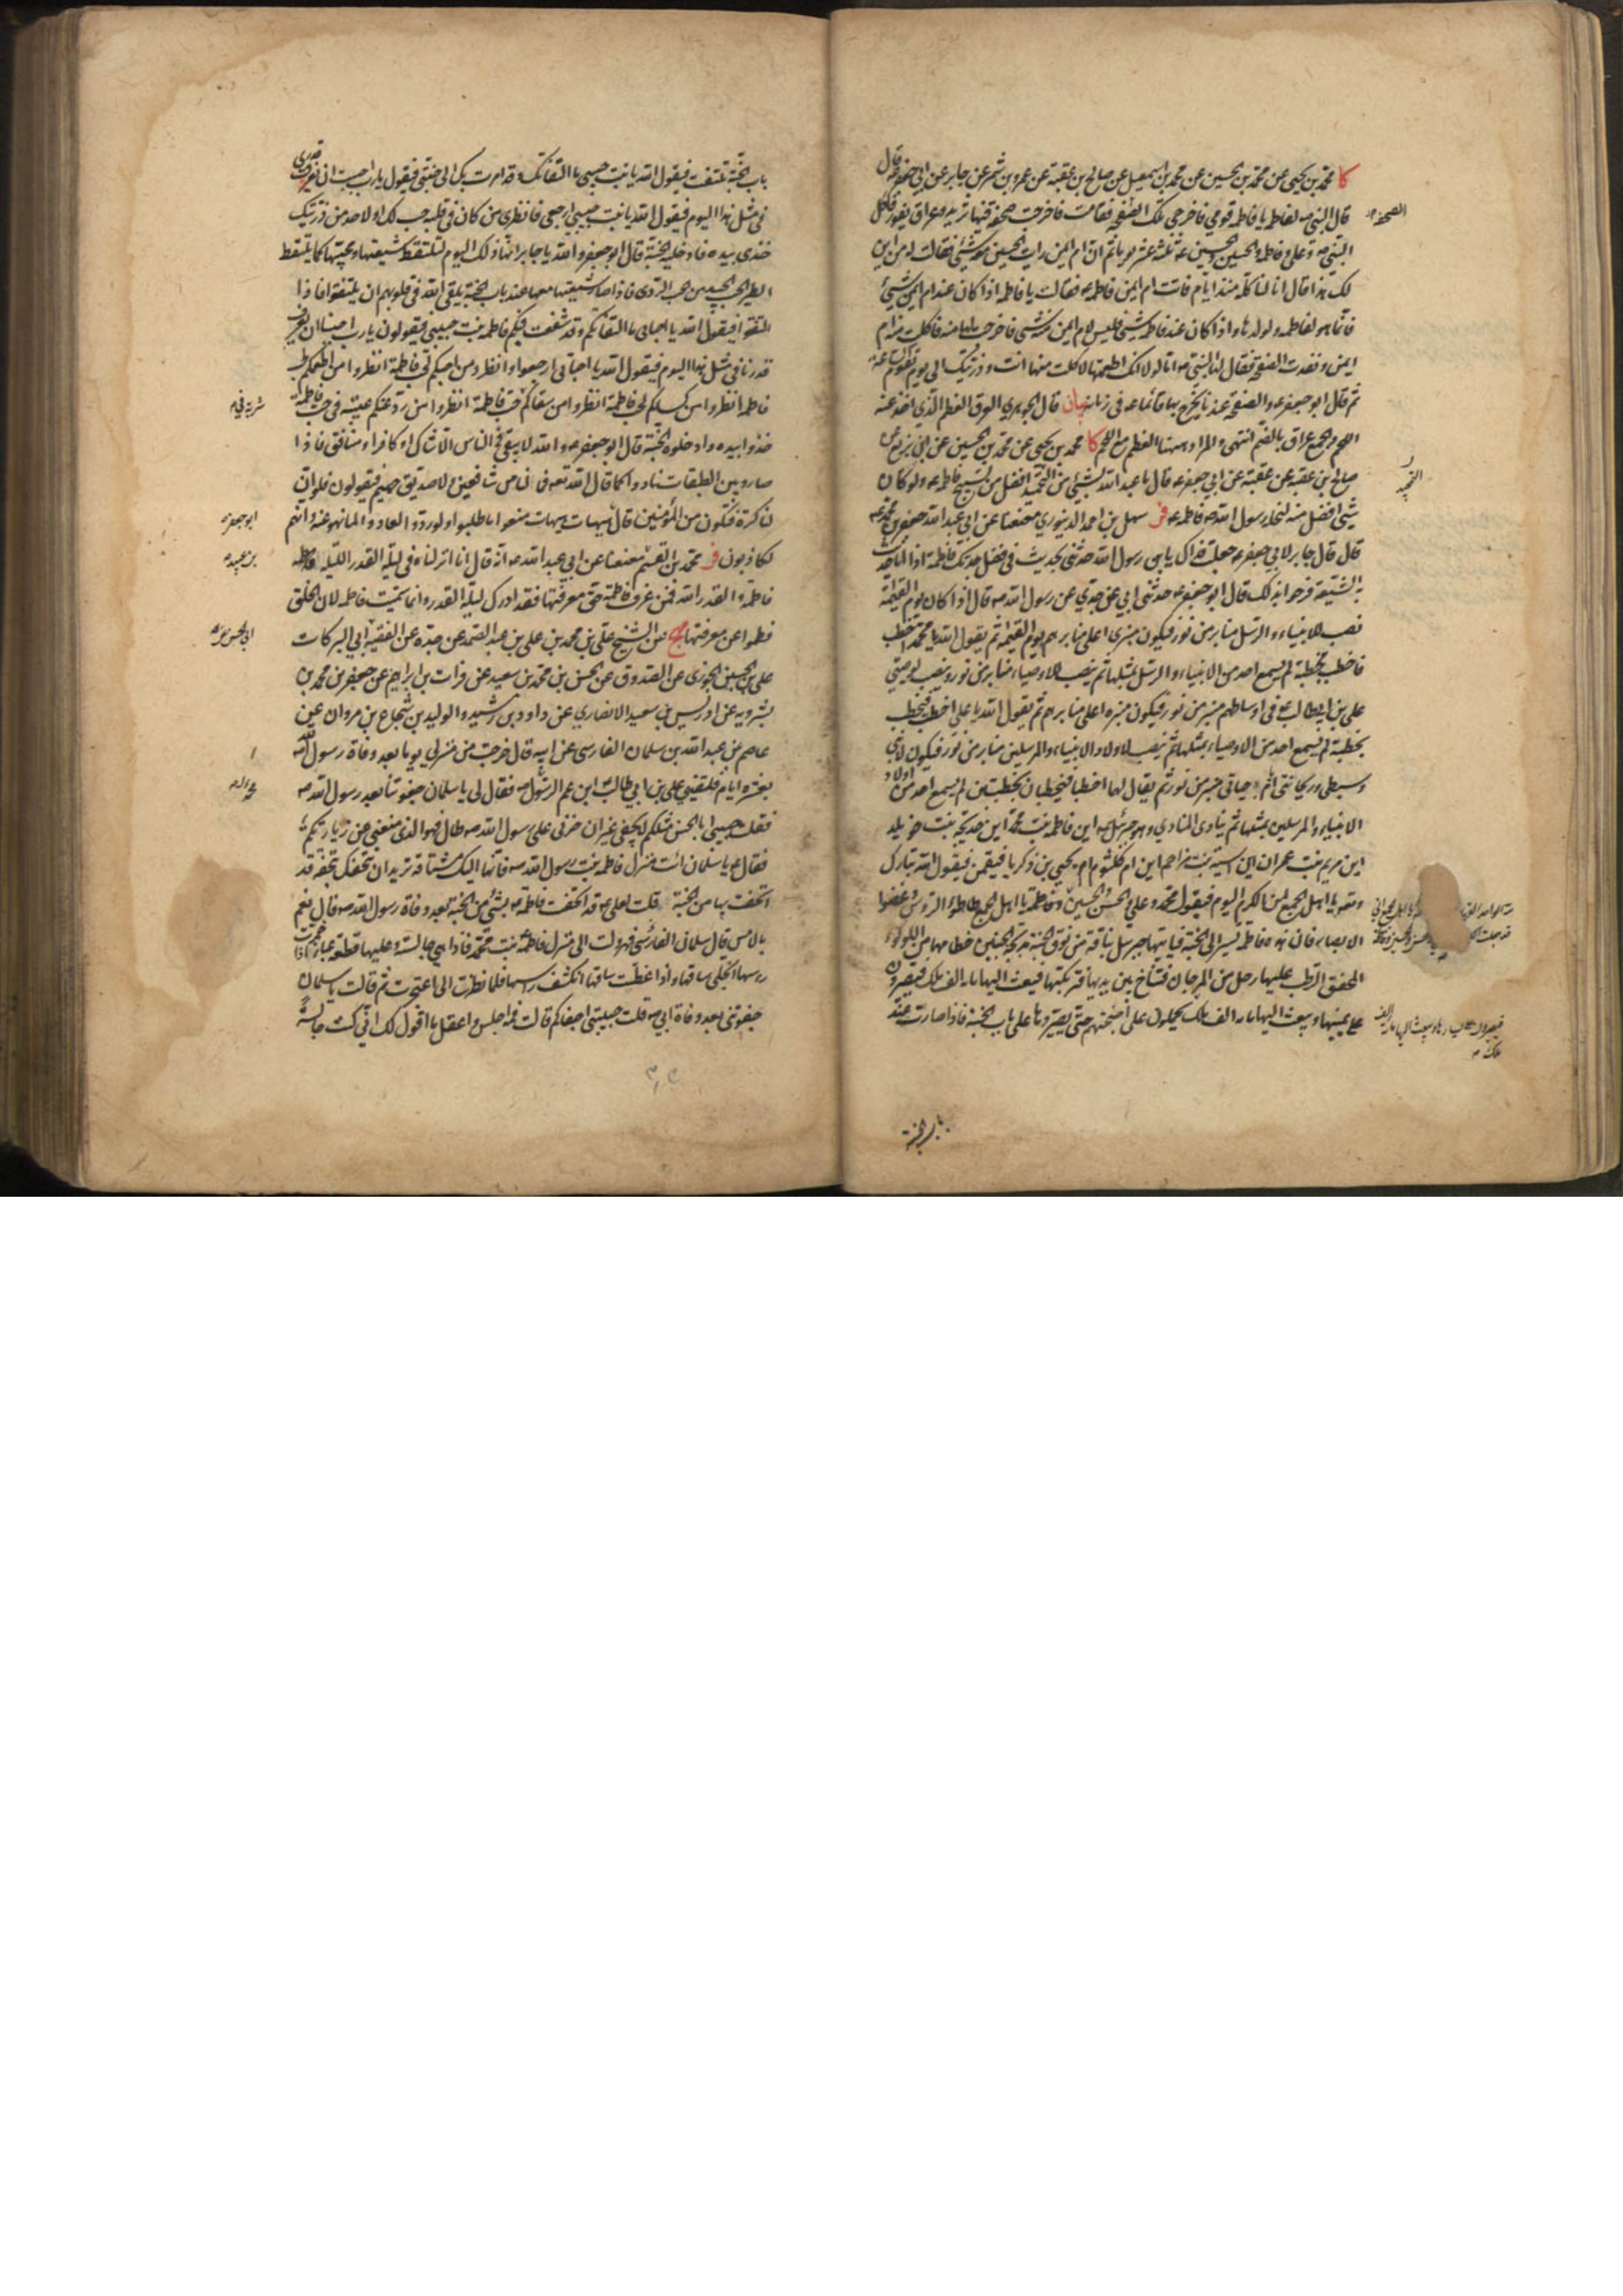 كا محمد بن يحيى عن محمد بن الحسين عن محمد بن اسمعيل عن صالح بن عقبة عن عمرو بن شمر عن جابر عن ابي جعفر ع قال
قال النبي ص لفاطمة يا فاطمة قومي فاخرجي تلك الصحفة فقامت فاخرجت صحفة فيها ثريد وعراق يفور فاكل
النبي ص وعلي وفاطمة والحسن والحسين ع ثلثة عشر يوما ثم ان ام ايمن رات الحسين معه شيء فقالت له من اين
لك هذا قال انا لناكله منذ ايام فاتت ام ايمن فاطمة ع فقالت يا فاطمة اذا كان عند ام ايمن شيء
فانما هو لفاطمة ولولدها واذا كان عند فاطمة شيء فليس لام ايمن منه شيء فاخرجت لها منه فاكلت منه ام
ايمن ونفدت الصحفة فقال لها النبي ص اما لولا انك اطعمتها لاكلت منها انت وذريتك الى يوم تقوم الساعة
ثم قال ابو جعفر ع والصحفة عندنا يخرج بها قائمنا ع في زمانه بيان قال الجوهري العرق العظم الذي اخذ عنه
اللحم والجمع عراق بالضم انتهى والمراد ههنا العظم مع اللحم كا محمد بن يحيى عن محمد بن الحسين عن ابن بزيع عن
صالح بن عقبة عن عقبة عن ابي جعفر ع قال ما عبد الله بشيء من التحميد افضل من تسبيح فاطمة ع ولو كان
شيء افضل منه لنحله رسول الله ص فاطمة ع فر سهل بن احمد الدينوري معنعنا عن ابي عبد الله جعفر بن محمد ع
قال قال جابر لابي جعفر ع جعلت فداك يابن رسول الله حدثني بحديث في فضل جدتك فاطمة اذا انا حدثت
به الشيعة فرحوا بذلك قال ابو جعفر ع حدثني ابي عن جدي عن رسول الله ص قال اذا كان يوم القيمة
نصب للانبياء والرسل منابر من نور فيكون منبري اعلى منابرهم يوم القيمة ثم يقول الله يا محمد اخطب
فاخطب بخطبة لم يسمع احد من الانبياء والرسل بمثلها ثم ينصب للاوصياء منابر من نور وينصب لوصيي
علي بن ابيطالب في اوساطهم منبر من نور فيكون منبره اعلى منابرهم ثم يقول الله يا علي اخطب فيخطب
بخطبة لم يسمع احد من الاوصياء بمثلها ثم ينصب لاولاد الانبياء والمرسلين منابر من نور فيكون لابني
وسبطي وريحانتي ايام حياتي منبر من نور ثم يقال لهما اخطبا فيخطبان بخطبتين لم يسمع احد من اولاد
الانبياء والمرسلين بمثلها ثم ينادي المنادي وهو جبرئيل ع اين فاطمة بنت محمد اين خديجة بنت خويلد
اين مريم بنت عمران اين آسية بنت مزاحم اين ام كلثوم ام يحيى بن زكريا فيقمن فيقول الله تبارك
وتعالى يا اهل الجمع لمن الكرم اليوم فيقول محمد وعلي والحسن والحسين وفاطمة يا اهل الجمع طاطؤا الرؤس وغضوا
الابصار فان هذه فاطمة تسير الى الجنة فياتيها جبرئيل بناقة من نوق الجنة مدبجة الجنبين خطامها من اللؤلؤ
المخفق الرطب عليها رحل من المرجان فتناخ بين يديها فتركبها فيبعث اليها مائة الف ملك فيصيرون
على يمينها ويبعث اليها مائة الف ملك يحملونها على اجنحتهم حتى يصيروها على باب الجنة فاذا صارت عند
باب الجنة
الصحفة
التحميد
باب الجنة تلتفت فيقول الله يا بنت حبيبي ما التفاتك وقد امرت بك الى جنتي فيقول يا رب احببت ان يعرف قدري
في مثل هذا اليوم فيقول الله يا بنت حبيبي ارجعي فانظري من كان في قلبه حب لك او لاحد من ذريتك
خذي بيده فادخليه الجنة قال ابو جعفر والله يا جابر انها ذلك اليوم لتلتقط شيعتها ومحبيها كما يلتقط
الطير الحب الجيد من الحب الردي فاذا صار شيعتها معها عند باب الجنة يلقي الله في قلوبهم ان يلتفتوا فاذا
التفتوا فيقول الله يا احبائي ما التفاتكم وقد شفعت فيكم فاطمة بنت حبيبي فيقولون يا رب احببنا ان يعرف
قدرنا في مثل هذا اليوم فيقول الله يا احبائي ارجعوا وانظروا من احبكم لحب فاطمة انظروا من اطعمكم لحب
فاطمة انظروا من كساكم لحب فاطمة انظروا من سقاكم لحب فاطمة انظروا من رد عنكم غيبة في حب فاطمة
خذوا بيده وادخلوه الجنة قال ابو جعفر ع والله لا يبقى في الناس الا شاك او كافر او منافق فاذا
صاروا بين الطبقات نادوا كما قال الله تعالى فما لنا من شافعين ولا صديق حميم فيقولون فلو ان
لنا كرة فنكون من المؤمنين قال هيهات هيهات منعوا ما طلبوا ولو ردوا لعادوا لما نهوا عنه وانهم
لكاذبون فر محمد بن القسم معنعنا عن ابي عبد الله ع انه قال انا انزلناه في ليلة القدر الليلة فاطمة
والقدر الله فمن عرف فاطمة حق معرفتها فقد ادرك ليلة القدر وانما سميت فاطمة لان الخلق
فطموا عن معرفتها مهج عن الشيخ علي بن محمد بن علي بن عبد الصمد عن جده عن الفقيه ابي البركات
علي بن الحسين الجوزي عن الصدوق عن الحسن بن محمد بن سعيد عن فرات بن ابراهيم عن جعفر بن محمد بن
بشرويه عن ادريس بن سعيد الانصاري عن داود بن رشيد والوليد بن شجاع بن مروان عن
عاصم عن عبد الله بن سلمان الفارسي عن ابيه قال خرجت من منزلي يوما بعد وفاة رسول الله
بعشرة ايام فلقيني علي بن ابي طالب ابن عم الرسول ص فقال لي يا سلمان جفوتنا بعد رسول الله ص
فقلت حبيبي ابا الحسن مثلكم لا يجفى غير ان حزني على رسول الله ص طال فهو الذي منعني من زيارتكم
فقال ع يا سلمان ائت منزل فاطمة بنت رسول الله ص فانها اليك مشتاقة تريد ان تتحفك بتحفة قد
اتحفت بها من الجنة قلت لعلي ع قد اتحفت فاطمة ع بشيء من الجنة بعد وفاة رسول الله ص قال نعم
بالامس قال سلمان الفارسي فهرولت الى منزل فاطمة بنت محمد فاذا هي جالسة وعليها قطعة عباء اذا خمرت
راسها انجلى ساقها واذا غطت ساقها انكشف راسها فلما نظرت الي اعتجرت ثم قالت يا سلمان
جفوتني بعد وفاة ابي ص قلت حبيبتي لم اجفكم قالت فمه اجلس واعقل ما اقول لك اني كنت جالسة
ابو جعفر